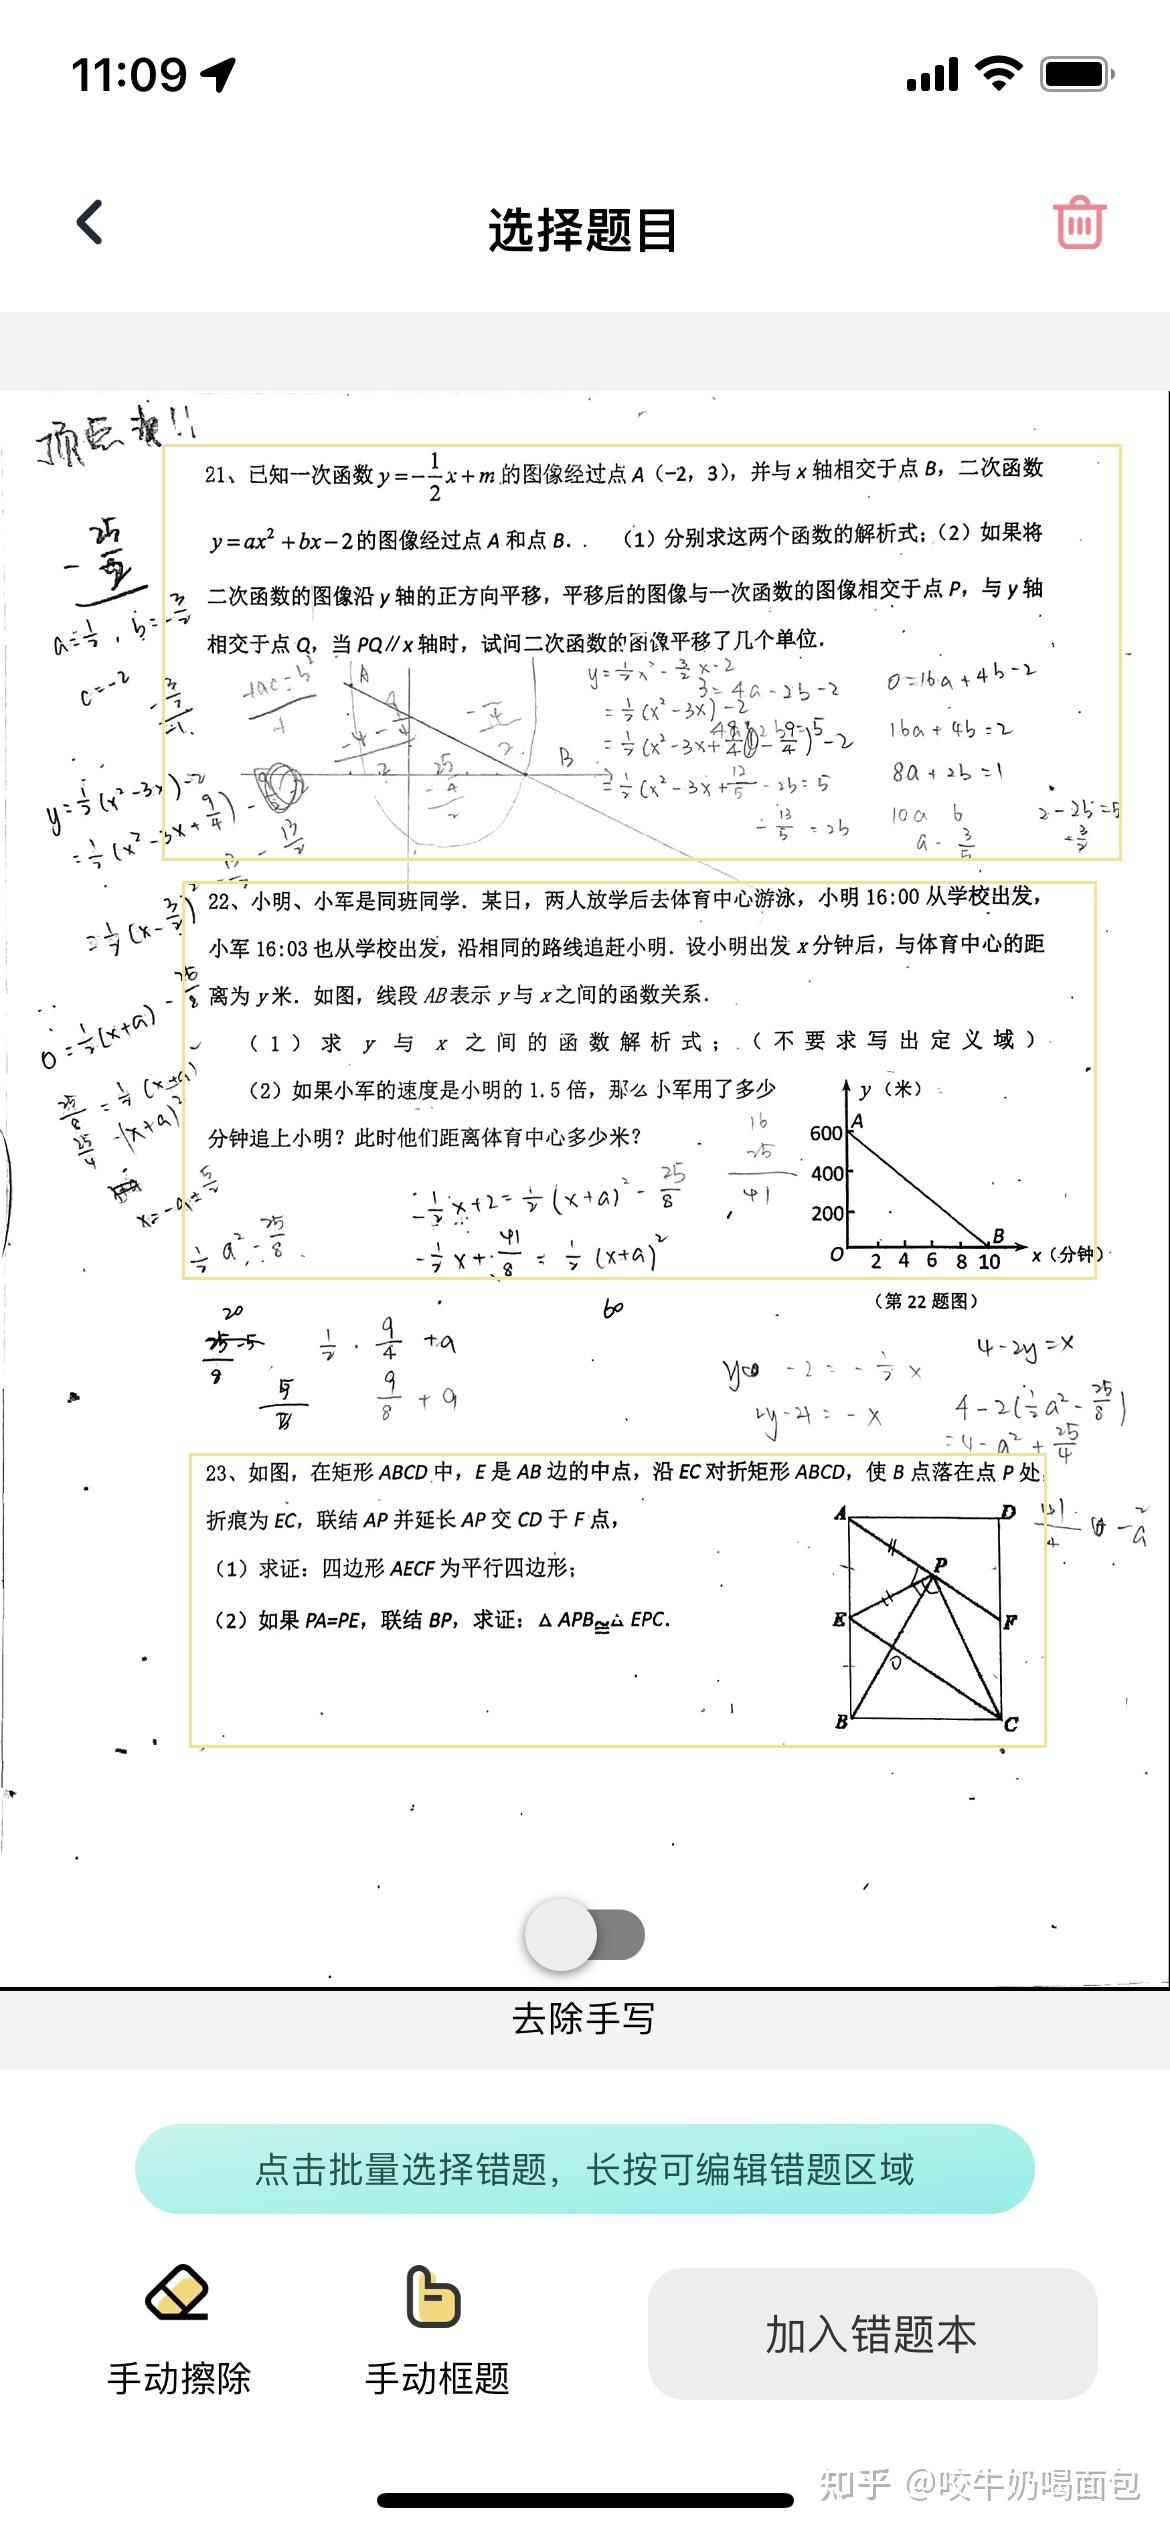 11:09
选择题目
顶点式!!
21、已知一次函数 y=-1/2x+m 的图像经过点 A（-2，3），并与 x 轴相交于点 B，二次函数
y=ax²+bx-2的图像经过点 A 和点 B．. （1）分别求这两个函数的解析式；（2）如果将
二次函数的图像沿 y 轴的正方向平移，平移后的图像与一次函数的图像相交于点 P，与 y 轴
相交于点 Q，当 PQ∥x 轴时，试问二次函数的图像平移了几个单位．
a=1/2, b=-3/2
c=-2
A
B
3=4a-2b-2
0=16a+4b-2
16a+4b=2
8a+2b=1
22、小明、小军是同班同学．某日，两人放学后去体育中心游泳，小明 16:00 从学校出发，
小军 16:03 也从学校出发，沿相同的路线追赶小明．设小明出发 x 分钟后，与体育中心的距
离为 y 米．如图，线段 AB 表示 y 与 x 之间的函数关系．
（1）求 y 与 x 之间的函数解析式；（不要求写出定义域）
（2）如果小军的速度是小明的 1.5 倍，那么小军用了多少
分钟追上小明？此时他们距离体育中心多少米？
y（米）
A
600
400
200
O
2 4 6 8 10
B
x（分钟）
16
25
41
-1/2x+2=1/2(x+a)²-25/8
-1/2x+41/8=1/2(x+a)²
（第 22 题图）
20
60
4-2y=x
4-2(1/2a²-25/8)
=4-a²+25/4
23、如图，在矩形 ABCD 中，E 是 AB 边的中点，沿 EC 对折矩形 ABCD，使 B 点落在点 P 处，
折痕为 EC，联结 AP 并延长 AP 交 CD 于 F 点，
（1）求证：四边形 AECF 为平行四边形；
（2）如果 PA=PE，联结 BP，求证：△APB≌△EPC．
A
D
P
E
F
O
B
C
去除手写
点击批量选择错题，长按可编辑错题区域
手动擦除
手动框题
加入错题本
知乎 @咬牛奶喝面包